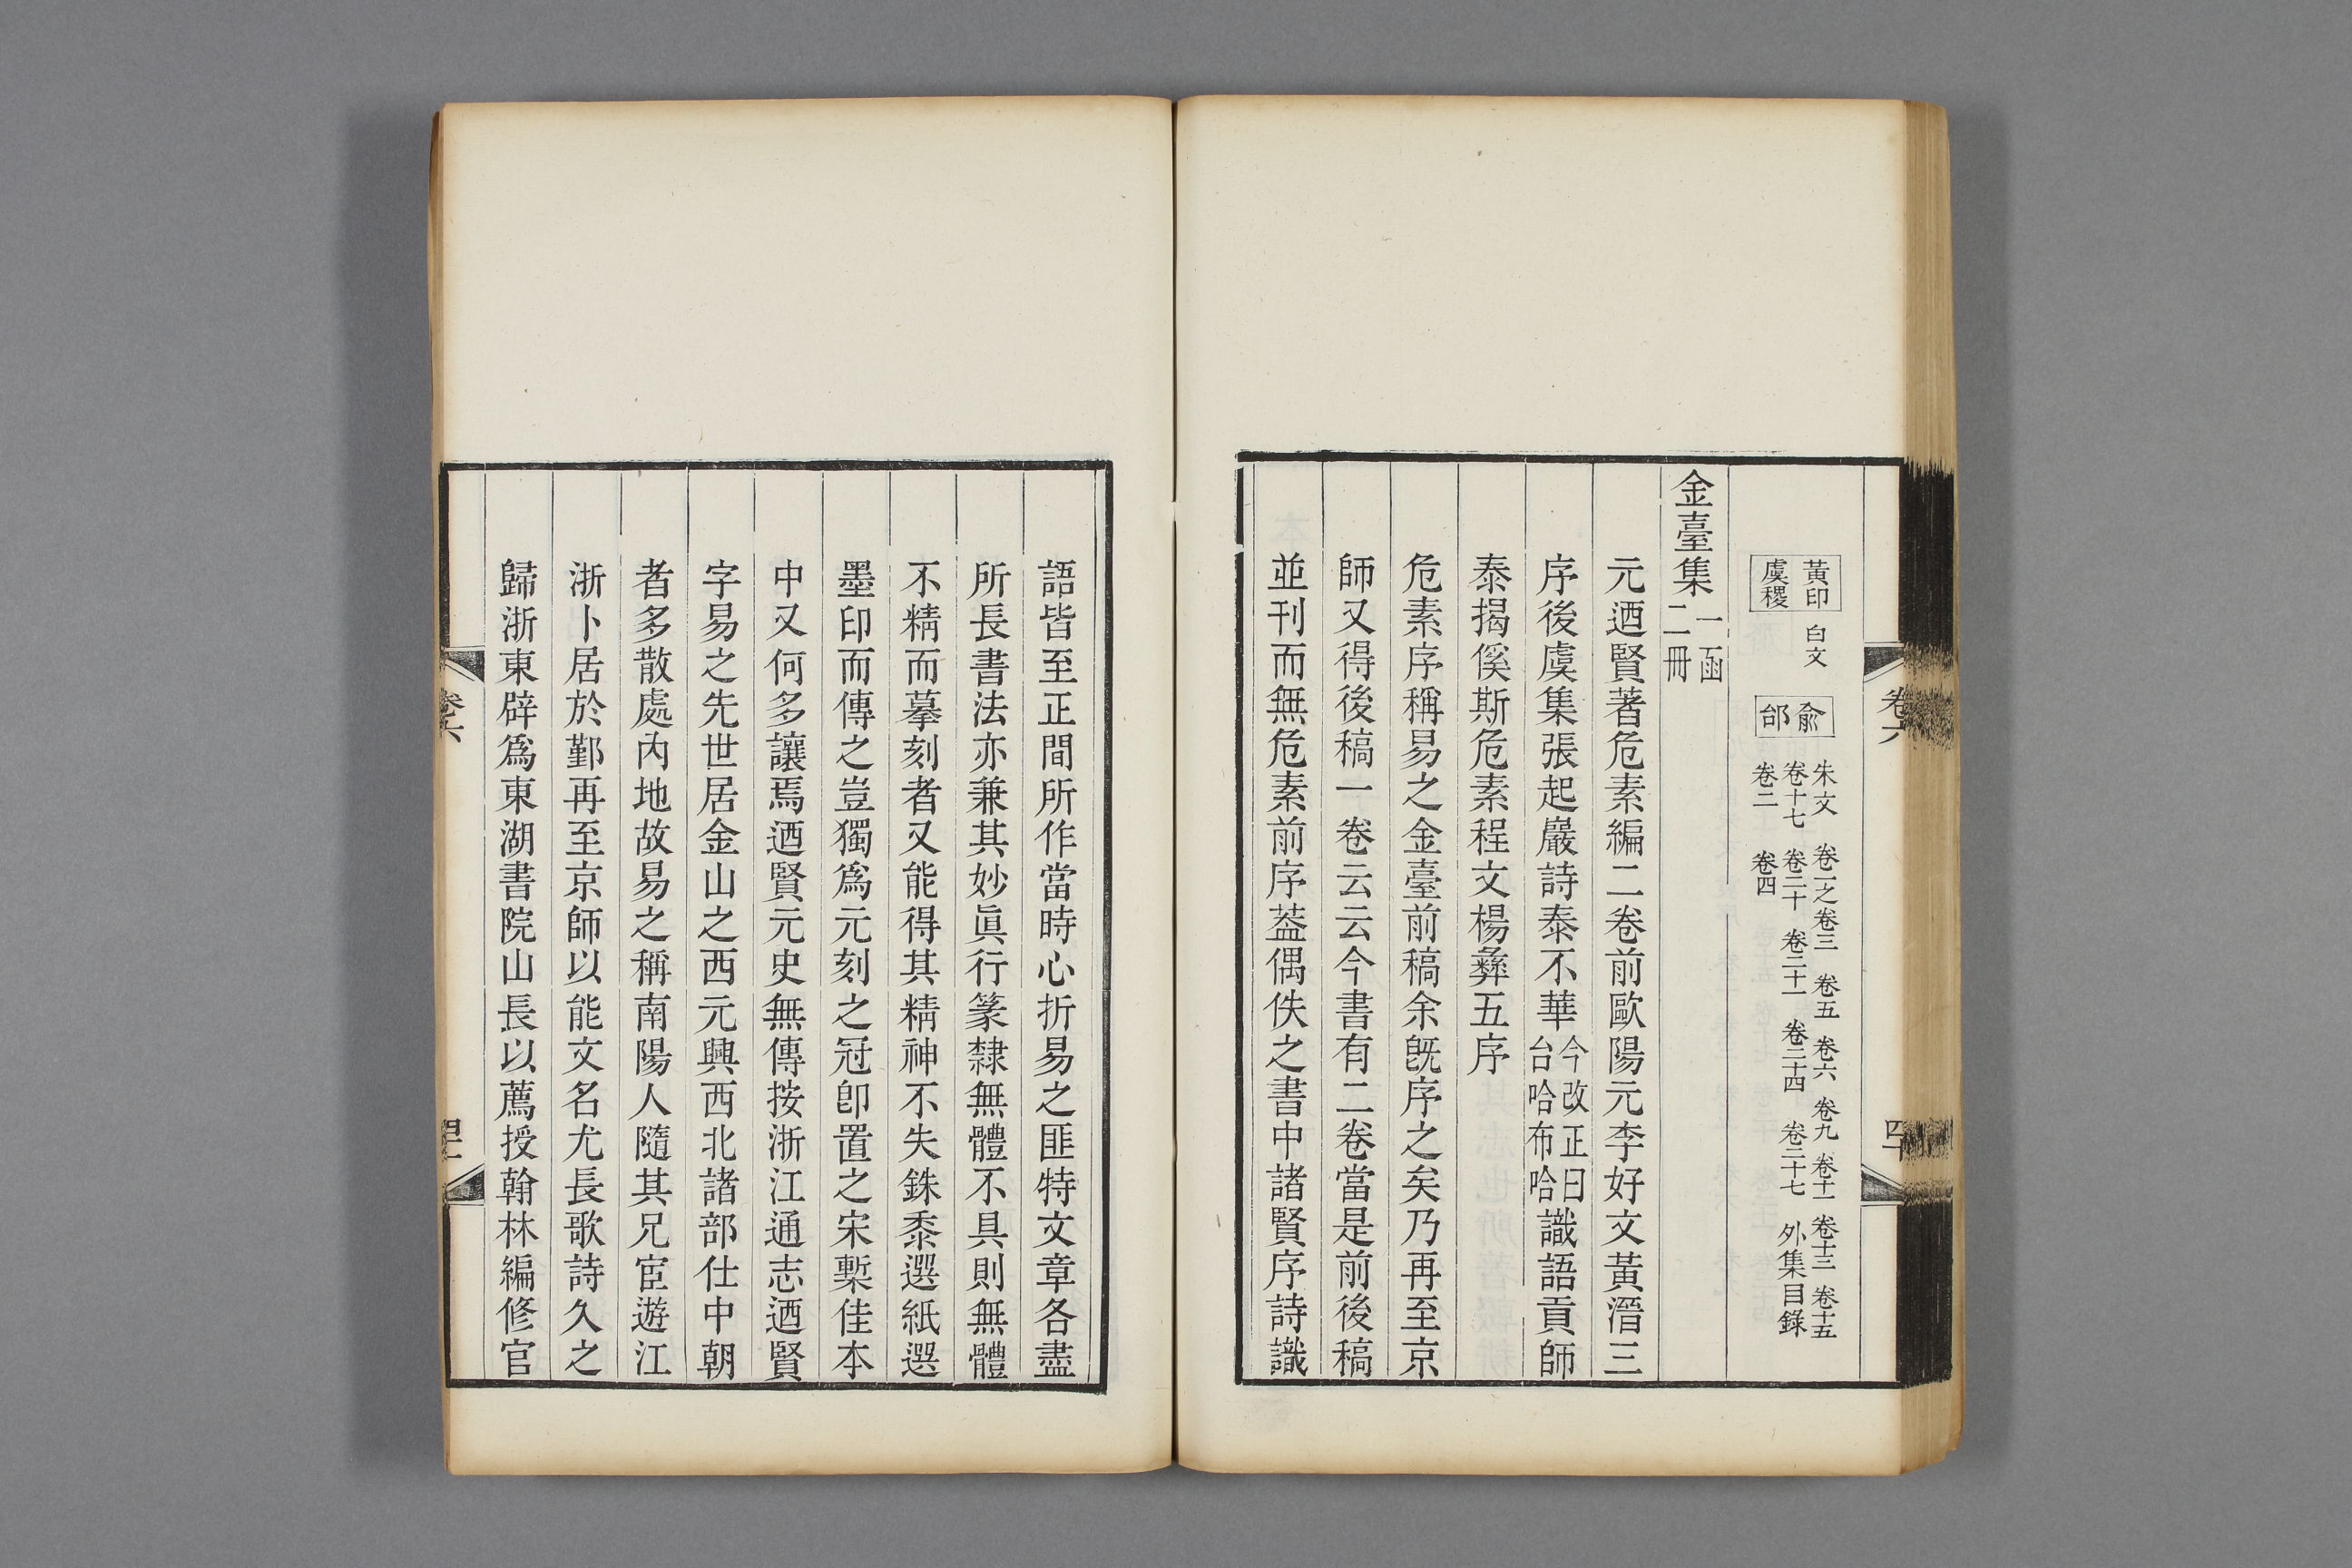 卷六
四十
黃印
虞稷
白文
俞
邰
朱文 卷一之卷三 卷五 卷六 卷九 卷十一 卷十三 卷十五
卷十七 卷二十 卷二十一 卷二十四 卷二十七 外集目錄
卷二 卷四
金臺集 一函二冊
元迺賢著危素編二卷前歐陽元李好文黃溍三
序後虞集張起巖詩泰不華今改正曰台哈布哈識語貢師
泰揭傒斯危素程文楊彝五序
危素序稱易之金臺前稿余旣序之矣乃再至京
師又得後稿一卷云云今書有二卷當是前後稿
並刊而無危素前序葢偶佚之書中諸賢序詩識
語皆至正間所作當時心折易之匪特文章各盡
所長書法亦兼其妙眞行篆隸無體不具則無體
不精而摹刻者又能得其精神不失銖黍選紙選
墨印而傳之豈獨爲元刻之冠卽置之宋槧佳本
中又何多讓焉迺賢元史無傳按浙江通志迺賢
字易之先世居金山之西元興西北諸部仕中朝
者多散處內地故易之稱南陽人隨其兄宦遊江
浙卜居於鄞再至京師以能文名尤長歌詩久之
歸浙東辟爲東湖書院山長以薦授翰林編修官
卷六